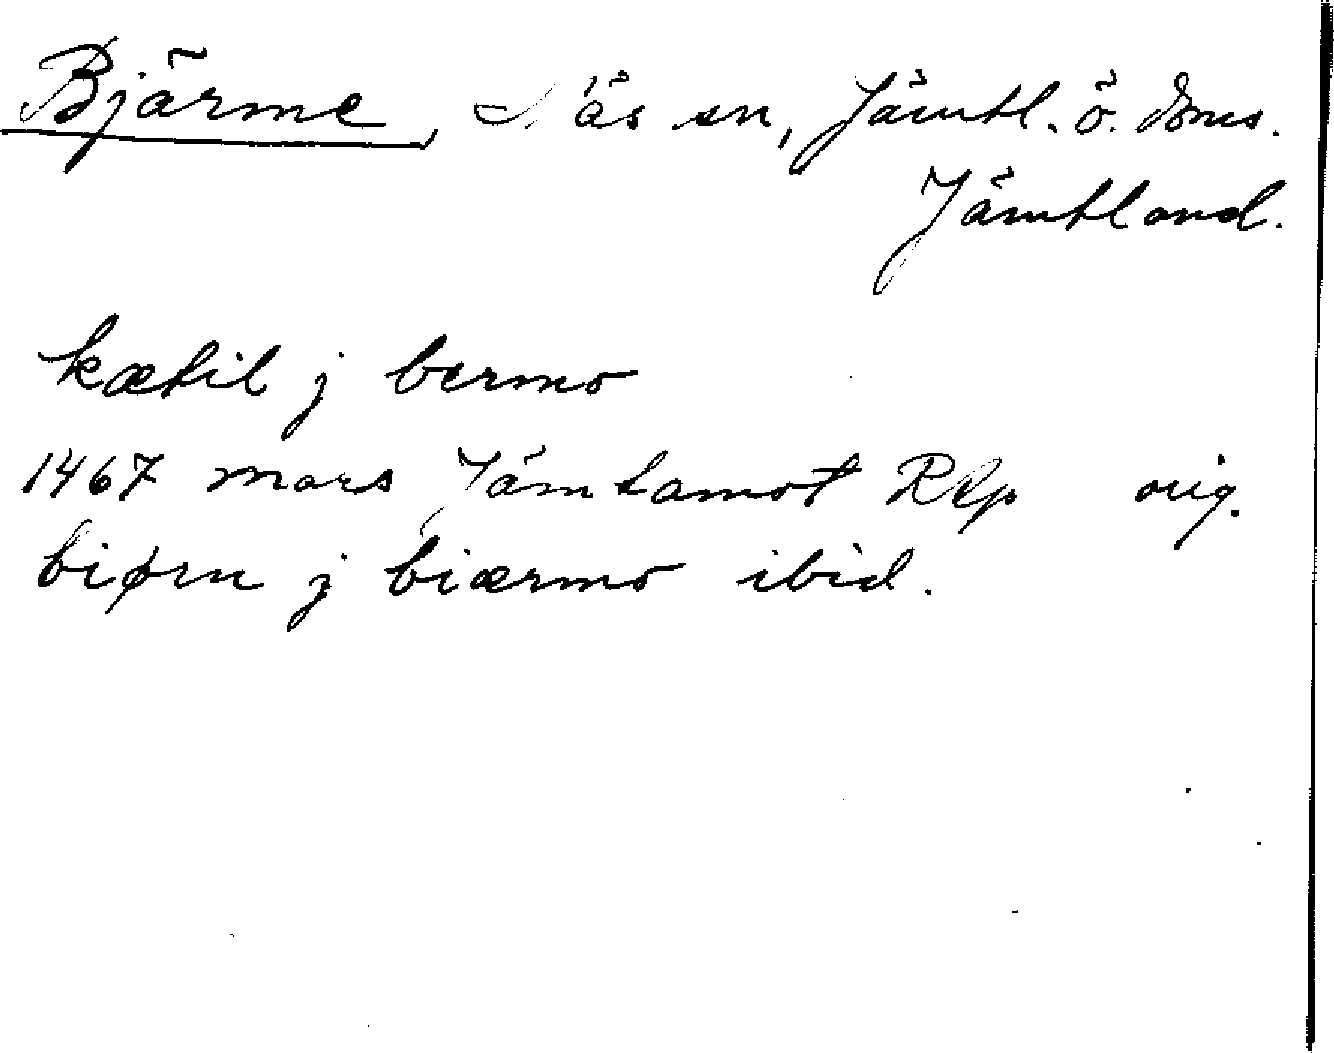 Bjärme, Näs sn, Jämtl. ö. doms.
Jämtland.
kætil j bermo
1467 mars Jämtamot RAp orig.
biørn j biærmo ibid.